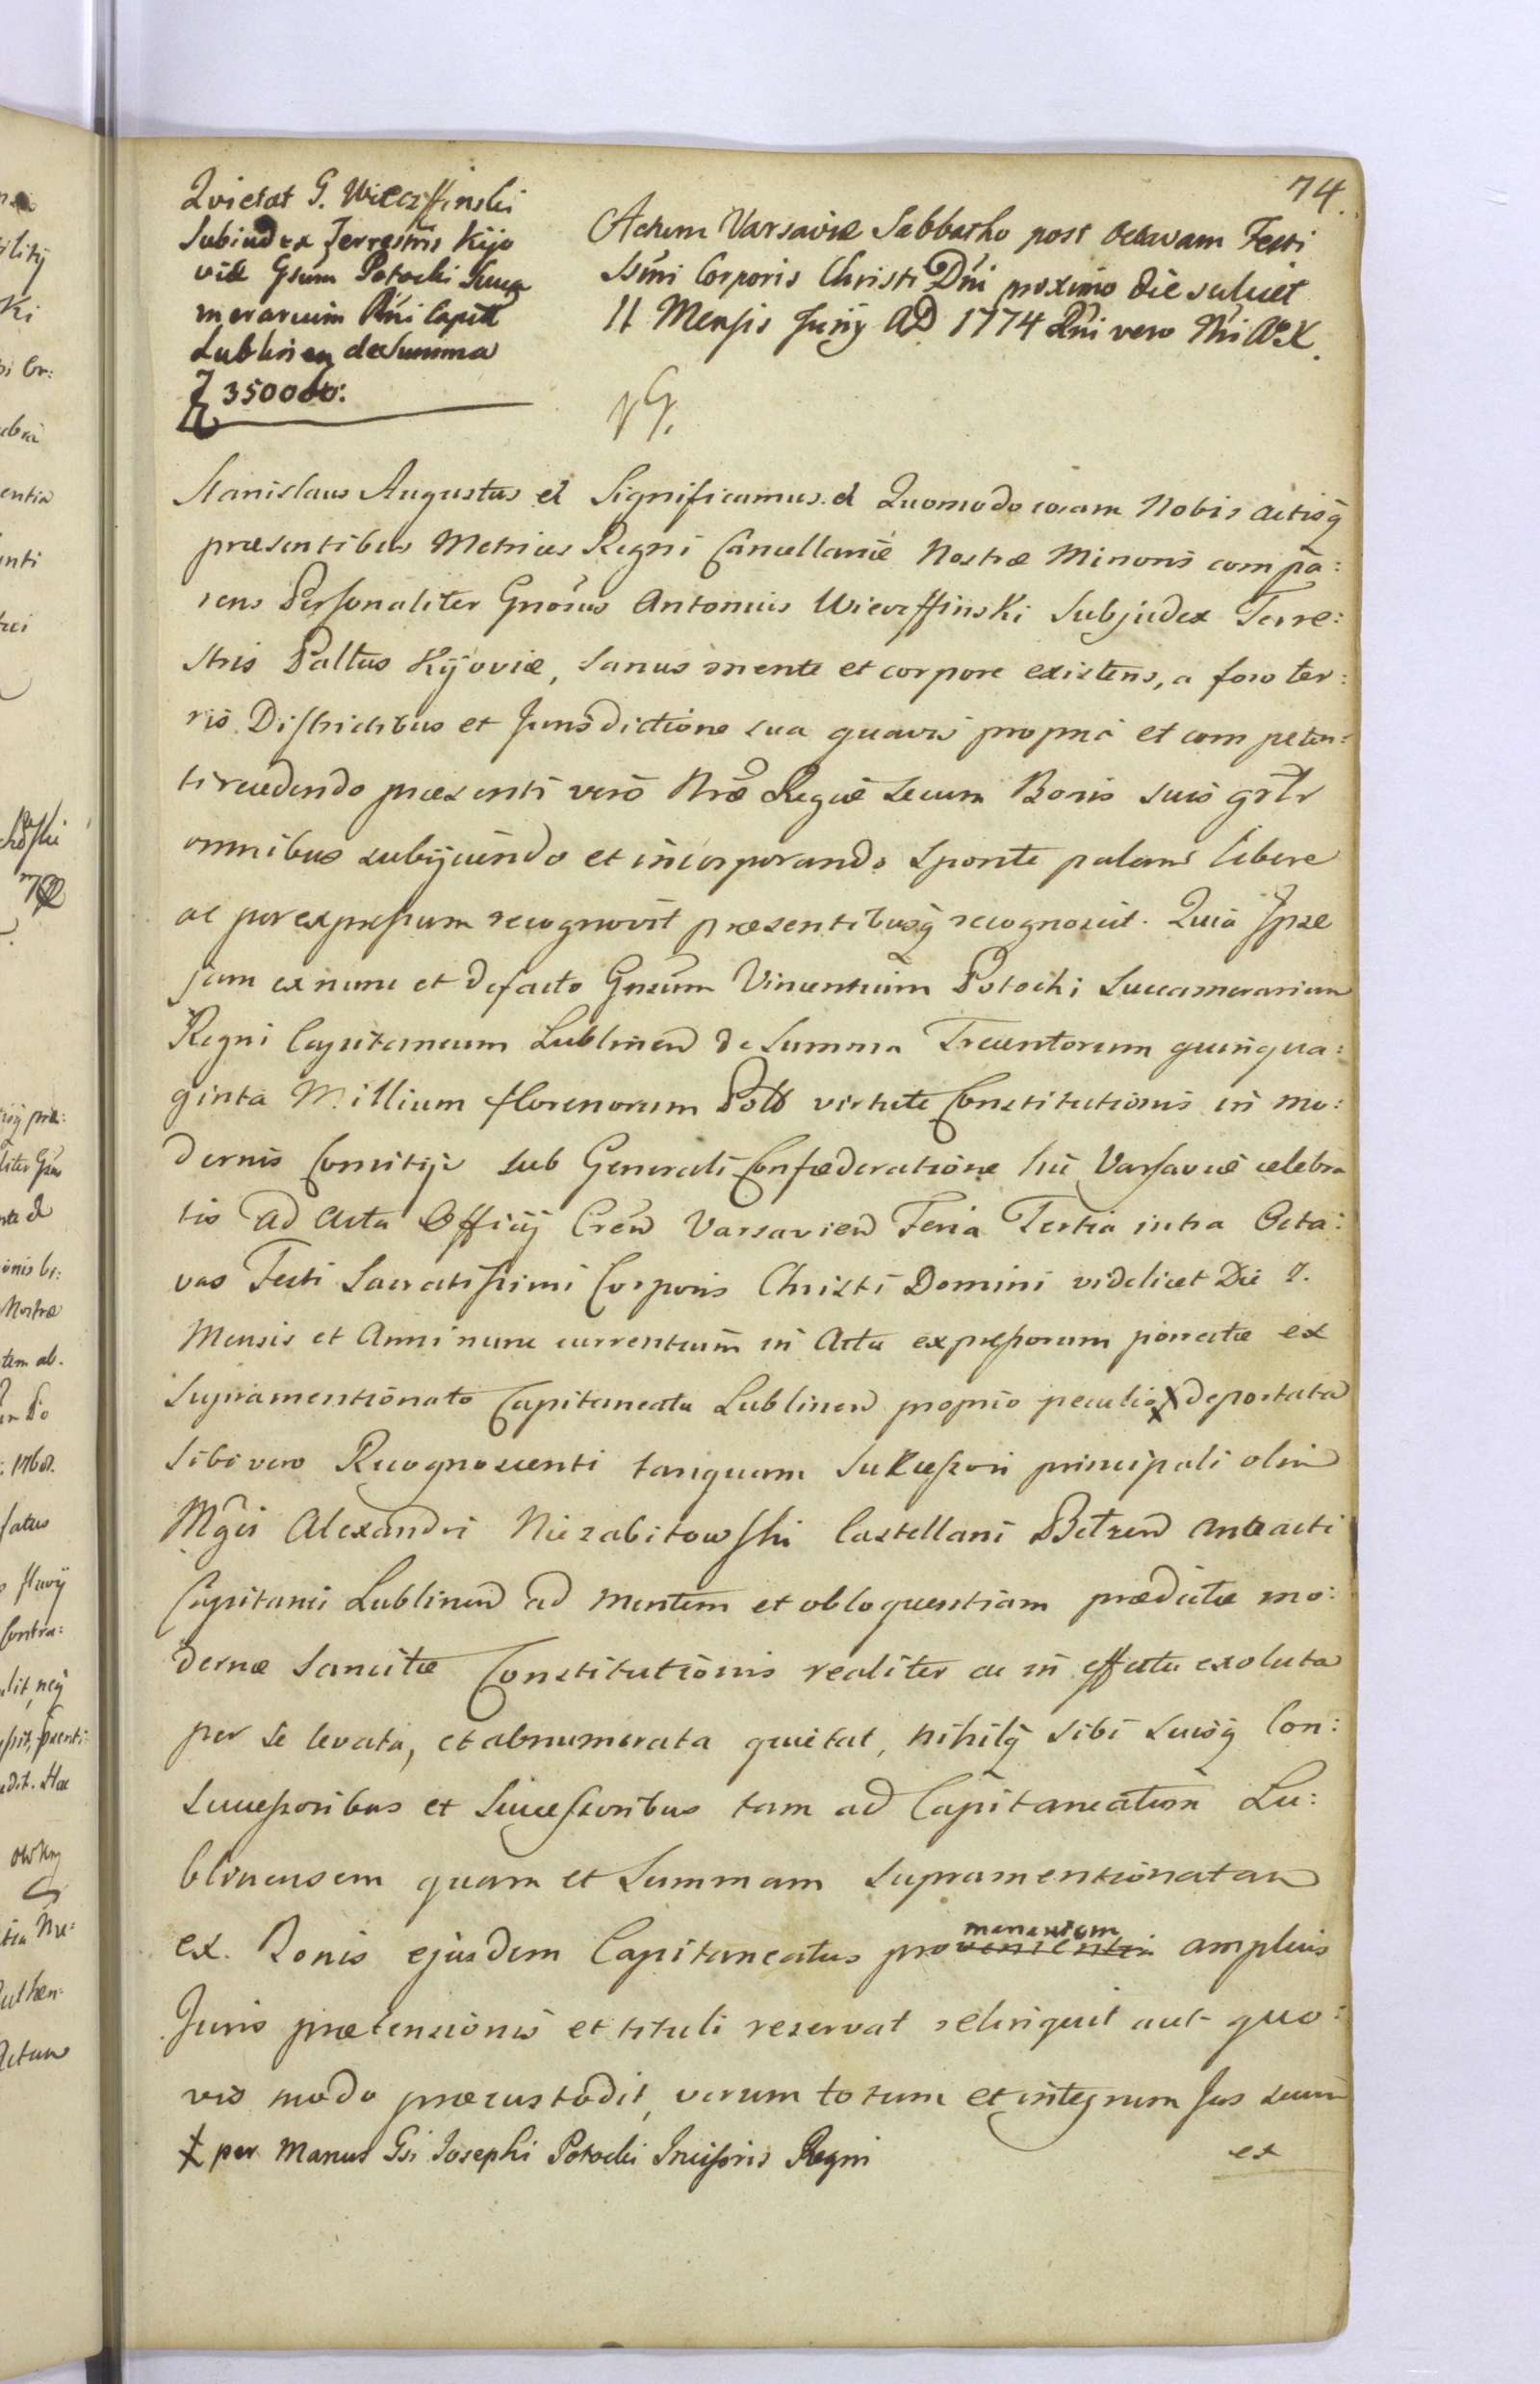 74.
Quietat G. Wieczffinski
Subiudex Terrestris Kijo
viæ Gsum Potocki Succa
merarium Rni Capit
Lublinen de Summa
f 350000:
Actum Varsaviæ Sabbatho post Octavam Festi
Ssmi Corporis Christi Dni proximo die scilicet
11 Mensis Junij AD 1774 Rni vero Nri Ao X.
Stanislaus Augustus et Significamus. et Quomodo coram Nobis actisq
præsentibus Metrices Regni Cancellariæ Nostræ Minoris compa:
rens Personaliter Gnosus Antonius Wieczffinski Subjudex Terre:
stris Pallus Kijoviæ, Sanus mente et corpore existens, a foro ter:
ris Districtibus et Jurisdictione sua quavis propria et competen:
ti recedendo præsenti vero Nræ Regiæ secum Bonis suis grlr
omnibus subijciendo et incorporando sponte palam libere
ac per expressum recognovit præsentibusq recognoscit. Quia Ipse
jam ex nunc et de facto Gnsum Vincentium Potocki Succamerarium
Regni Capitaneum Lublinen de Summa Trecentorum quinqua:
ginta Millium florenorum Poll virtute Constitutionis in mo:
dernis Comitijs sub Generali Confæderatione hic Varsaviæ celebra
tis ad Acta Officij Cren Varsavien Feria Tertia intra Octa:
vas Festi Sacratissimi Corporis Christi Domini videlicet Die 7.
Mensis et Anni nunc currentium in Actu expressorum porrectæ ex
Supramentionato Capitaneatu Lublinen proprio peculio X deportata
Sibi vero Recognoscenti tanquam Sukcessori principali olim
Mgci Alexandri Niezabitowski Castellani Bełzen anteacti
Capitanei Lublinen ad mentem et obloquentiam prædictæ mo:
dernæ Sancitæ Constitutionis realiter ac in effectu exoluta
per se levata, et abnumerata quietat, nihilq sibi suisq Con:
Successoribus et Successoribus tam ad Capitaneatum Lu:
blinensem quam et Summam supramentionatam
ex Bonis ejusdem Capitaneatus promanantem amplius
Juris prætensionis et tituli reservat relinquit aut quo:
vis modo præcustodit, verum totum et integrum Jus suum
X per Manus Gsi Josephi Potocki Incisoris Regni
et